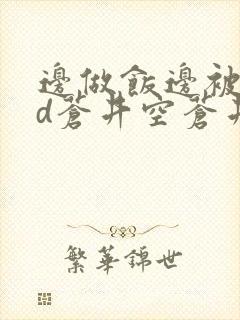 邊做飯邊被
d蒼井空蒼井
繁華錦世